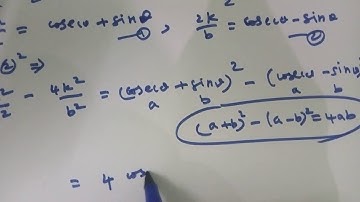 = cosecθ + sinθ ①, 2k/b = cosecθ − sinθ ②
②² ⇒
− 4k²/b² = (cosecθ + sinθ)² − (cosecθ − sinθ)
a b a b
(a+b)² − (a−b)² = 4ab
= 4 cos